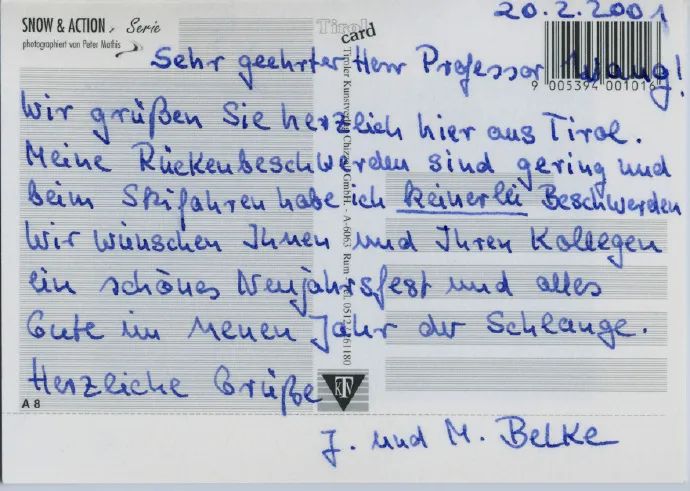 20.2.2001
SNOW & ACTION, Serie
photographiert von Peter Mathis
Tirol
card
Sehr geehrter Herr Professor Wang!
9 005394 001016
Wir grüßen Sie herzlich hier aus Tirol.
Meine Rückenbeschwerden sind gering und
beim Skifahren habe ich keinerlei Beschwerden
Wir wünschen Ihnen und Ihren Kollegen
ein schönes Neujahrsfest und alles
Gute im neuen Jahr der Schlange.
Herzliche Grüße
J. und M. Belke
Tiroler Kunstverlag Chizzali GmbH. - A-6063 Rum
KTV
A 8